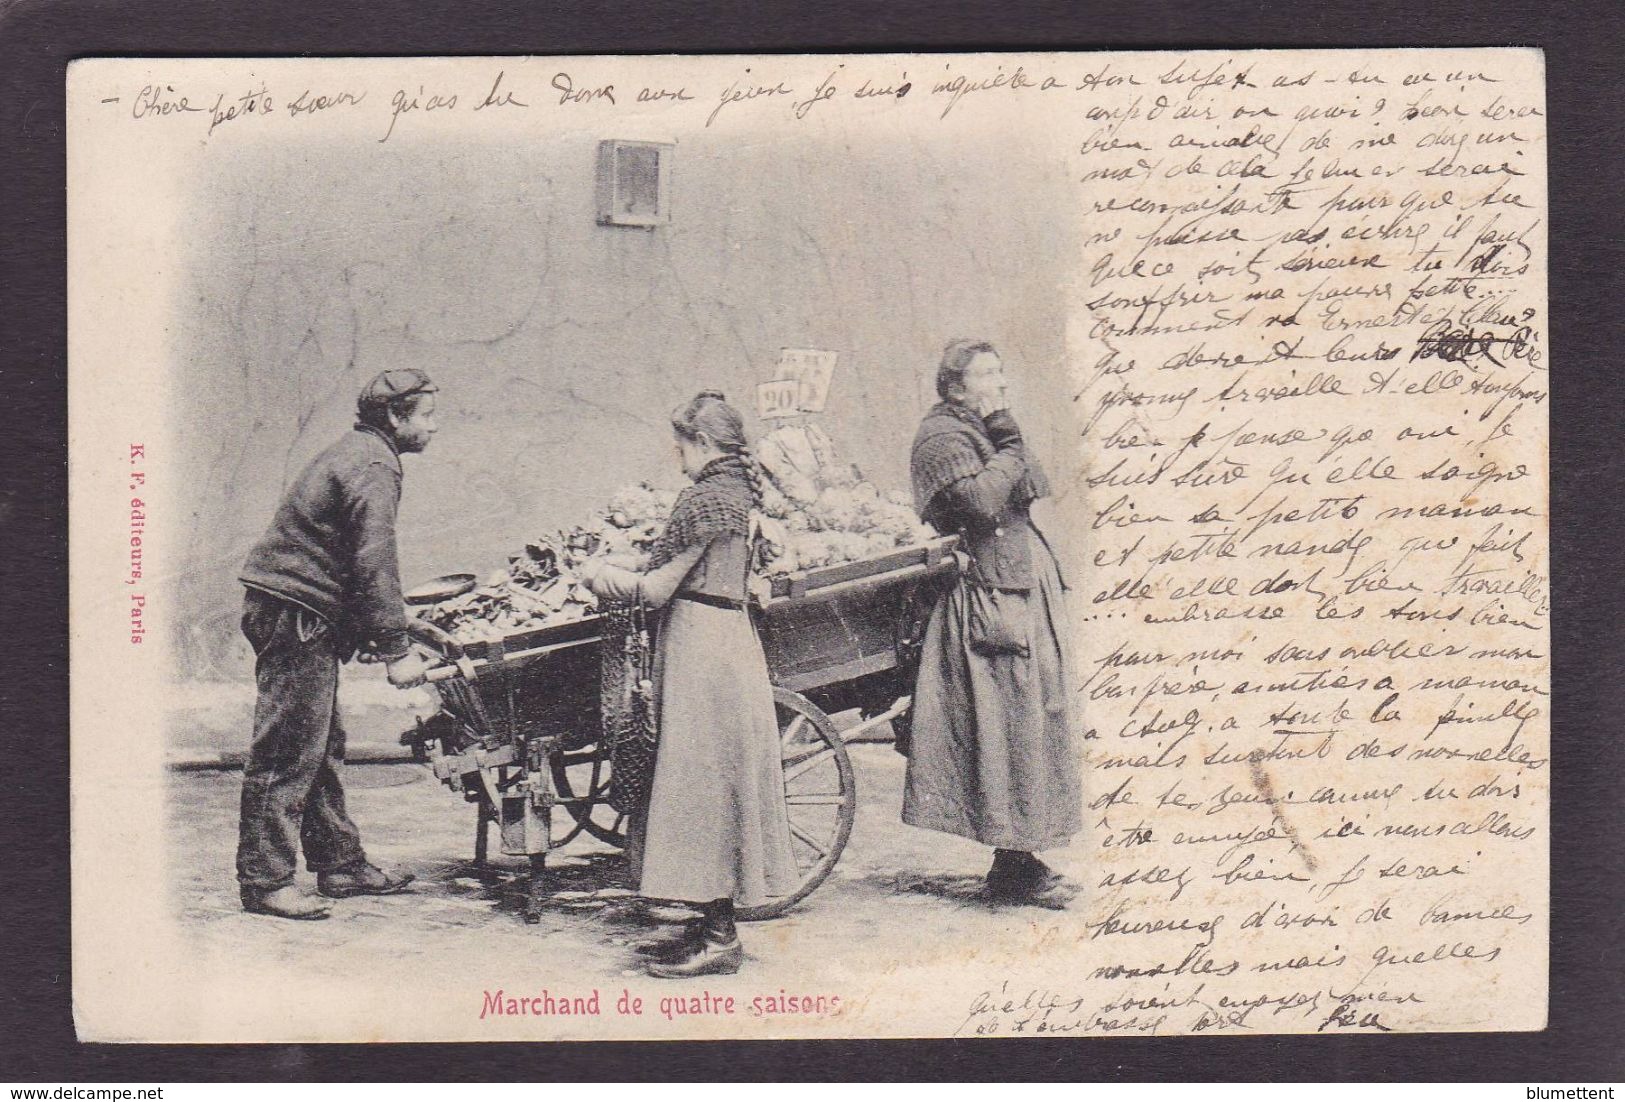 – Chère petite sœur qu'as tu donc aux yeux, je suis inquiète a ton sujet as-tu eu un
coup d'air ou quoi? Léon sera
bien aimable de me dire un
mot de cela je lui en serai
reconnaissante pour que tu
ne puisse pas écrire il faut
que ce soit sérieux tu dois
souffrir ma pauvre petite....
comment va Ernest et Cleu?
que devient leurs Père
travaille t-elle toujours
bien je pense que oui, je
suis sûre qu'elle soigne
bien sa petite maman
et petite nande que fait
elle elle doit bien travailler
.... embrasse les tous bien
pour moi sans oublier mon
bo frère, amitiés a maman
a toute la famille
mais surtout des nouvelles
de te yeux comme tu dois
être ennuyée, ici nous allons
assez bien, je serai
heureuse d'avoir de bonnes
nouvelles mais quelles
qu'elles soient envoyez m'en
je t'embrasse
K. F. éditeurs, Paris
20
Marchand de quatre saisons
blumettent